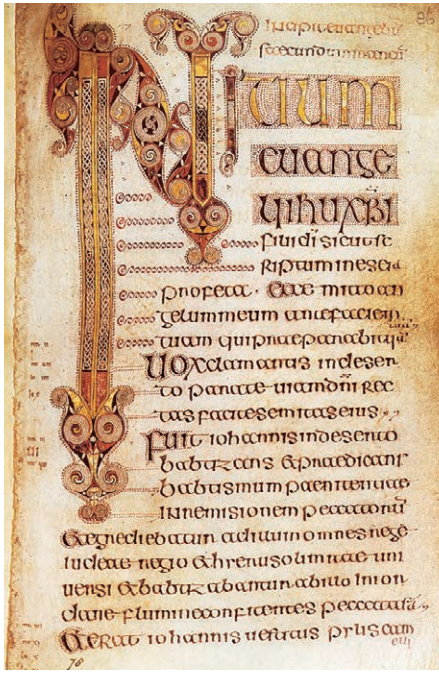 86
Incipit euangeliū
secundum marcū
INITIUM
EUANGE
LII IHU XPI
filii dī sicut sc
riptum in esaia
profeta · Ecce mitto an
gelum meum ante faciem
tuam qui praeparabit
Uox clamantis in deser
to parate uiam dn̄i rec
tas facite semitas eius
Fuit iohannis in deserto
babtizans & praedicans
babtismum paenitentiae
in remisionem peccatorū
& egrediebatur ad illum omnes
iudeae regio & hierusolimitae uni
uersi & babtizabantur ab illo in ior
dane flumine confitentes peccata sua
& erat iohannis uestitus pylis cam
elli
78